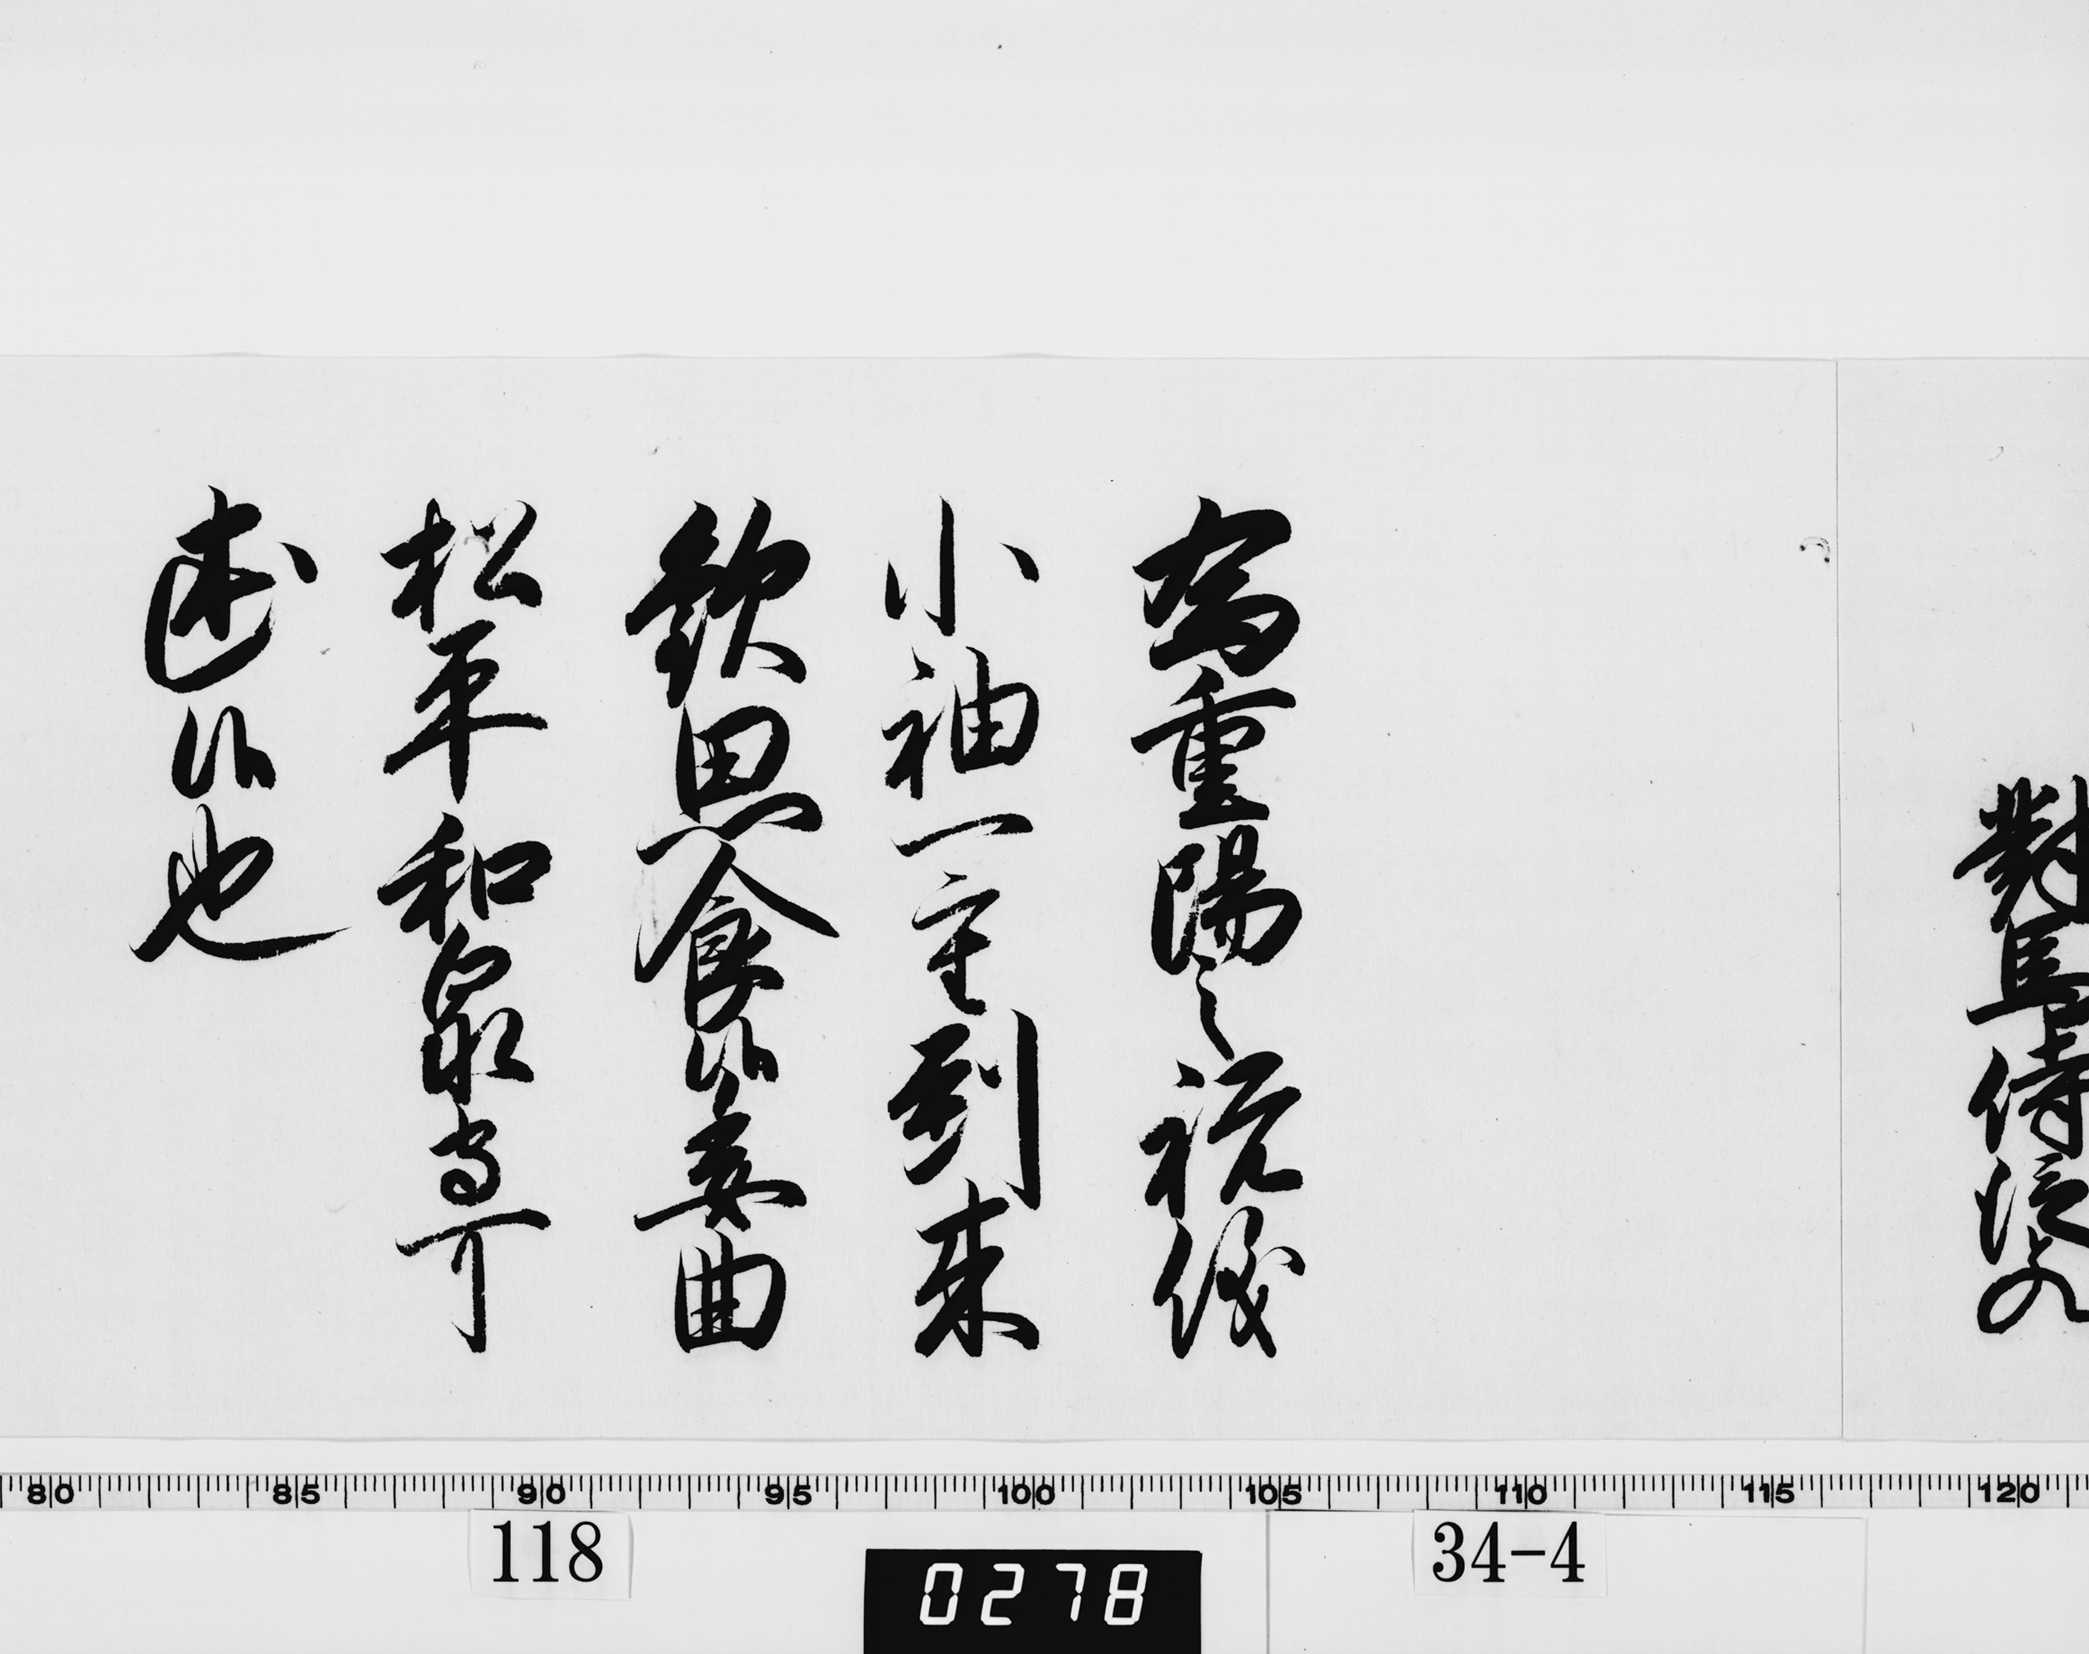 對馬侍従とのへ
為重陽之祝儀
小袖一重到来
歓思食候委曲
松平和泉守可
述候也
80 85 90 95 100 105 110 115 120
118
0278
34-4